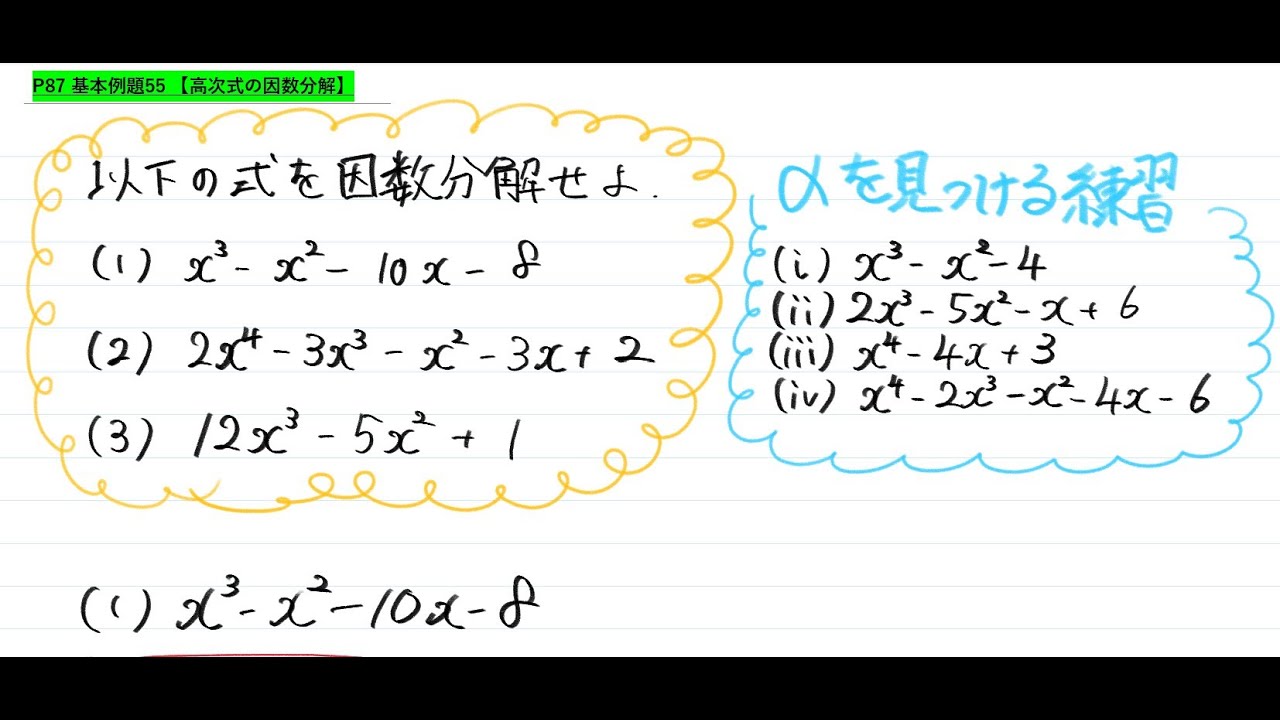 P87 基本例題55 【高次式の因数分解】
以下の式を因数分解せよ.
(1) x³ - x² - 10x - 8
(2) 2x⁴ - 3x³ - x² - 3x + 2
(3) 12x³ - 5x² + 1
αを見つける練習
(i) x³ - x² - 4
(ii) 2x³ - 5x² - x + 6
(iii) x⁴ - 4x + 3
(iv) x⁴ - 2x³ - x² - 4x - 6
(1) x³ - x² - 10x - 8